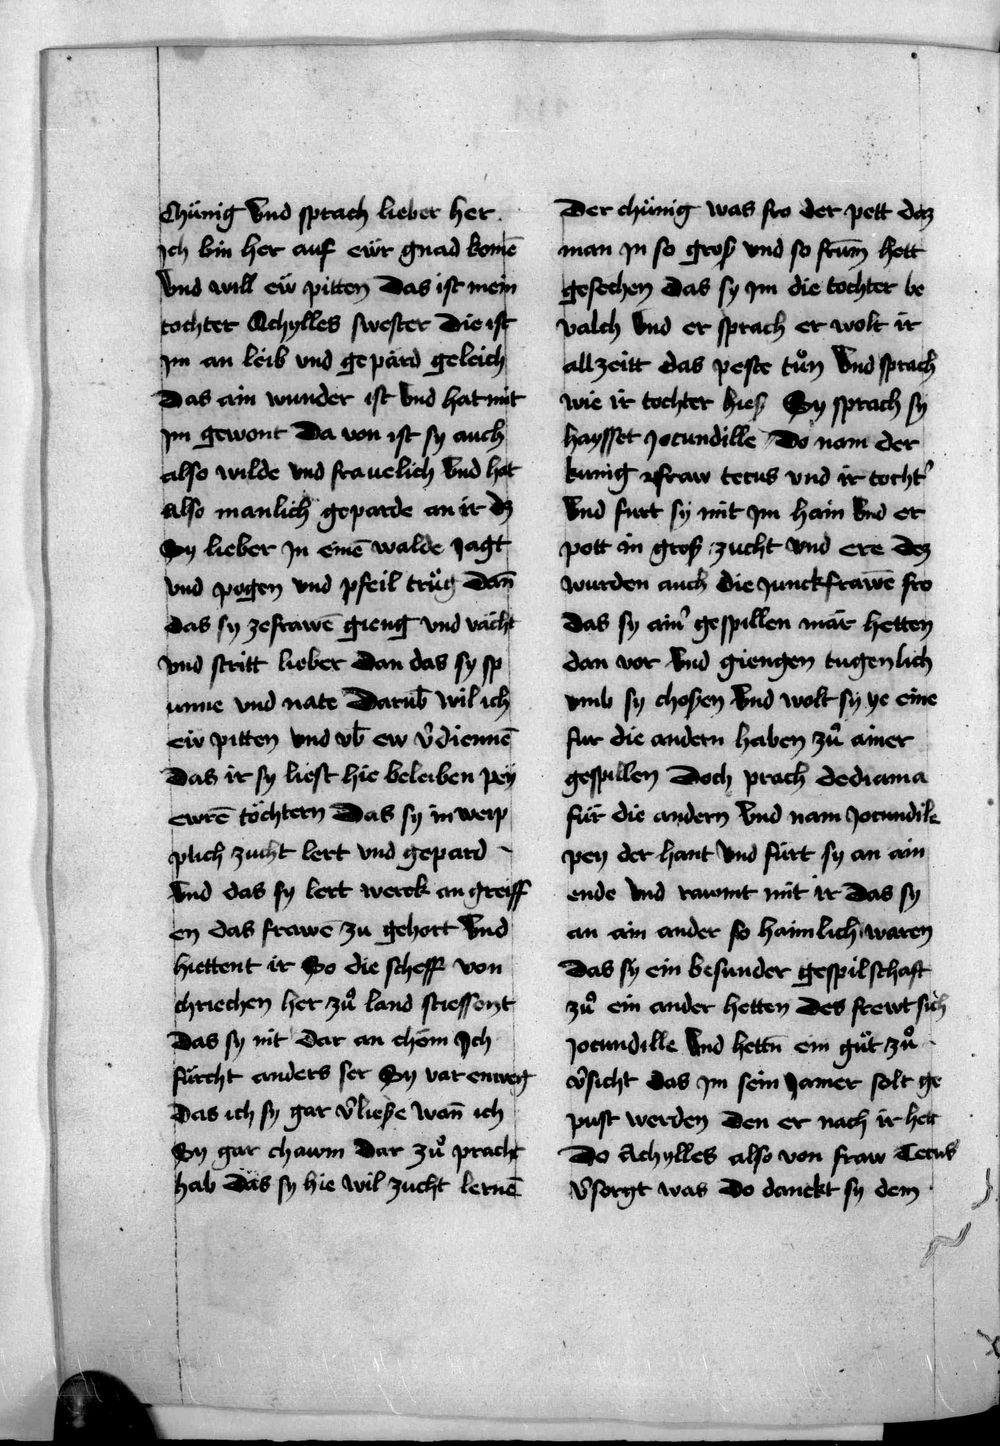 Chünig Vnd sprach lieber her
Ich bin her auf ewr gnad komē
Vnd will ew pitten Das ist mein
tochter Achylles swester Die ist
Im an leib vnd gepärd geleich
Das ain wunder ist Vnd hat mit
Im gewont Da von ist sy auch
also wilde vnd frauelich Vnd hat
also manlich geparde an ir dz
Sy lieber In einē walde Jagt
vnd pogen vnd pfeil trüg Dan̄
das sy zefrawē gieng vnd vächt
vnd stritt lieber Dan das sy sp
unne vnd nate Darub̄ wil ich
ew pitten vnd vb̄ ew v̓diennē
Das ir sy liest hie beleiben pey
ewrē töchtern Das sy in weip
plich zucht lert vnd gepard
Vnd das sy lert werck angreiff
en das frawē zu gehort Vnd
hiettent ir So die scheff von
chriechen her zuͦ land stiessent
Das sy nit dar an chöm Ich
fürcht anders ser Sy var enweg
Das ich sy gar v̓liese wan̄ ich
Sy gar chawm dar zuͦ pracht
hab Das sy hie wil zucht lernē
Der chünig was fro der pett daz
man In so gross vnd so frum̄ hett
gesechen das sy Im die tochter be
valch Vnd er sprach er wolt ir
allzeitt das peste tuͦn Vnd sprach
wie ir tochter hiess Sy sprach sy
haysset Jocundille Do nom der
kunig fraw tecus vnd ir tocht̓
Vnd furt sy mit Im haim Vnd er
pott in gross zucht vnd ere Dez
wurden auch die Junckfrawē fro
das sy ain̓ gespillen mär hetten
dan vor Vnd giengen tugenlich
vmb sy chosen Vnd wolt sy ye eine
fur die andern haben zuͦ ainer
gespillen Doch prach dediama
für die andern Vnd nam Jocundile
pey der hant Vnd fürt sy an ain
ende Vnd rawmt mit ir Das sy
an ain ander so haimlich waren
Das sy ein besunder gespilschaft
zuͦ ein ander hetten Des frewt sich
Jocundille Vnd hettn̄ ein guͦt zuͦ
v̓sicht das Im sein Jamer solt ge
pust werden den er nach ir hett
Do Achylles also von fraw Tecus
v̓sorgt was Do danckt sy dem